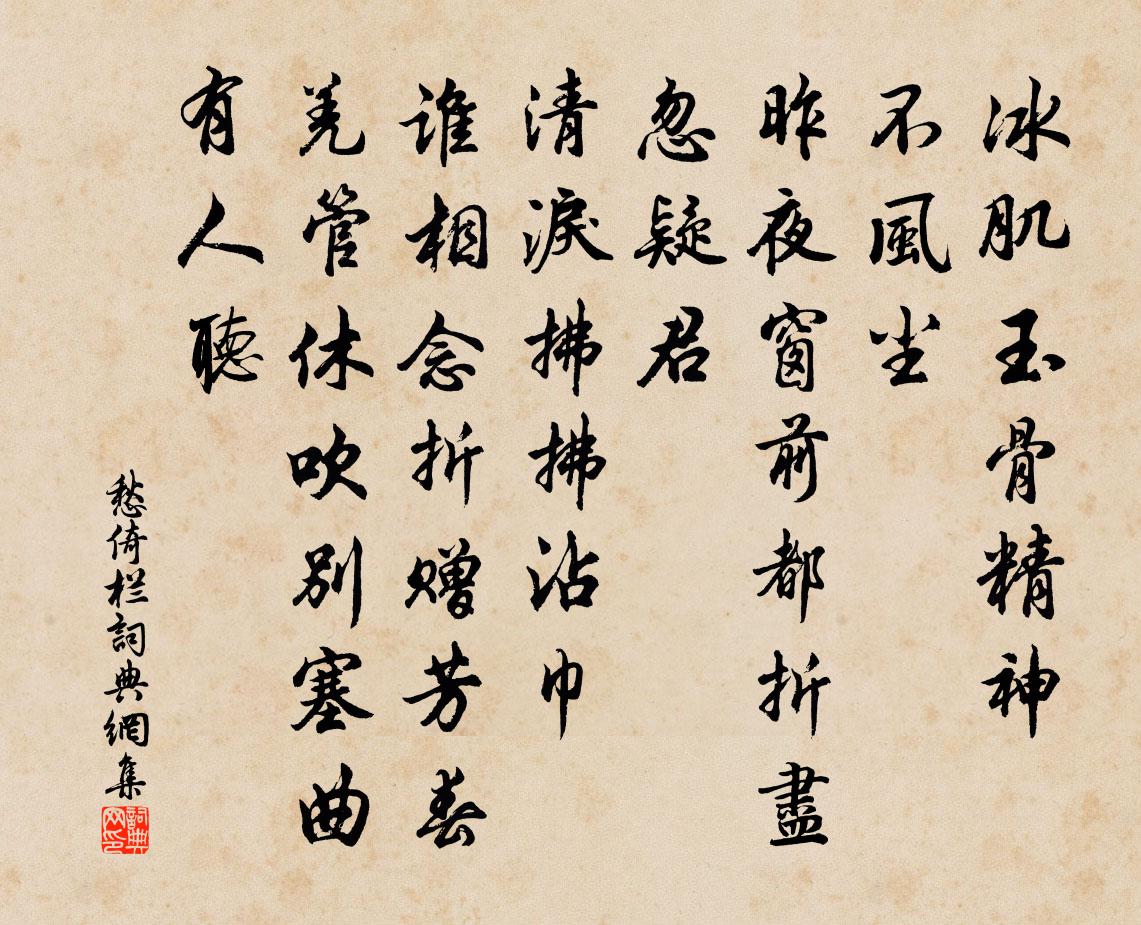 冰肌玉骨精神
不風塵
昨夜窗前都折盡
忽疑君
清淚拂拂沾巾
誰相念折贈芳春
羌管休吹別塞曲
有人聽
愁倚栏詞典網集
詞典网印